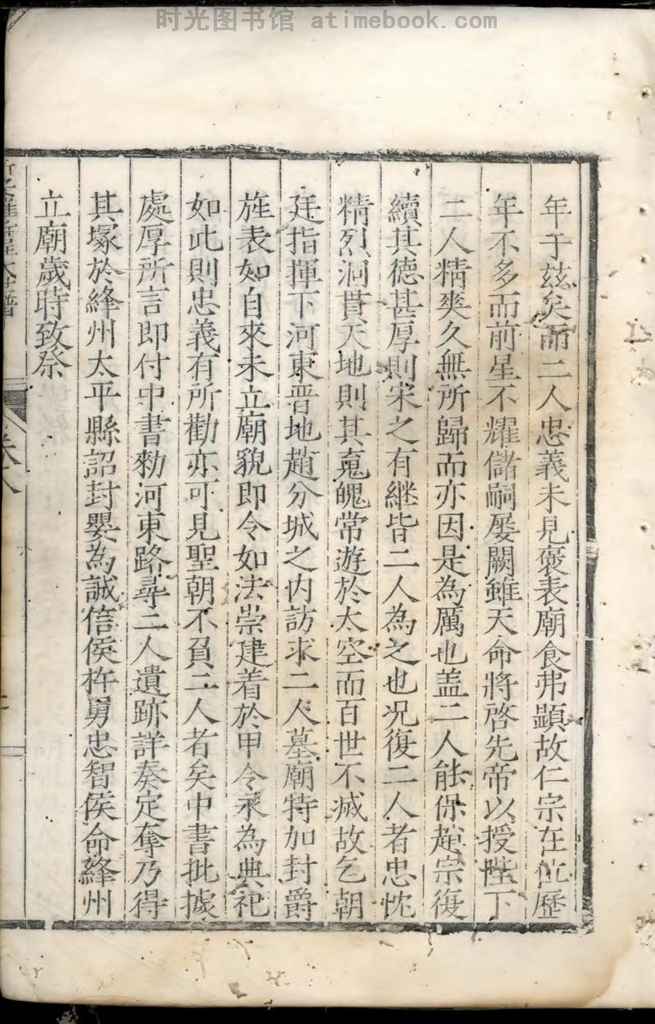 时光图书馆 atimebook.com
年于兹矣而二人忠義未見褒表廟食弗顯故仁宗在位歷
年不多而前星不耀儲嗣屡闕雖天命將啓先帝以授陛下
二人精爽久無所歸而亦因是為厲也盖二人能保趙宗復
續其德甚厚則宋之有継皆二人為之也况復二人者忠忱
精烈洞貫天地則其䰟魄常遊於太空而百世不㓕故乞朝
廷指揮下河東晋地趙分城之内訪求二人墓廟特加封爵
旌表如自來未立廟貌即令如法崇建着於甲令永為典祀
如此則忠義有所勸亦可見聖朝不負二人者矣中書批據
處厚所言即付中書勑河東路尋二人遺跡詳奏定奪乃得
其塚於絳州太平縣詔封嬰為誠信侯杵臼忠智侯命絳州
立廟歲時致祭
卷八